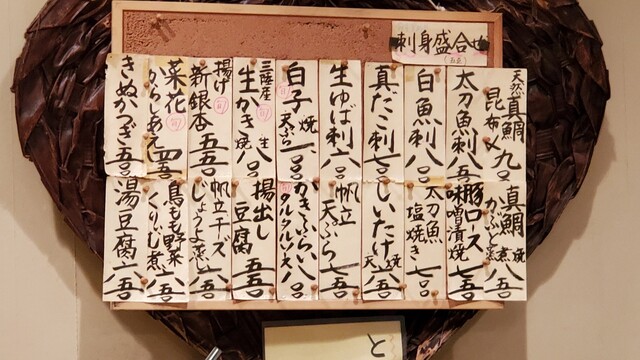 刺身盛合せ
天然真鯛昆布〆 九〇
太刀魚刺 八五〇
白魚刺 八〇〇
真たこ刺 七〇〇
生ゆば刺 六八〇
白子 焼 天ぷら
三陸産 生かき 生 焼 八〇〇
揚げ新銀杏 旬 五五〇
菜花からしあえ 旬 四五〇
きぬかつぎ 五五〇
真鯛かぶと煮 焼 八五〇
豚ロース味噌漬焼 七五〇
太刀魚塩焼き 七〇〇
しいたけ 焼 天 八五〇
帆立天ぷら 七五〇
かきふらい タルタルソース 八〇〇
揚出し豆腐 五五〇
帆立チーズ
鳥もも野菜くりーむ煮 八五〇
湯豆腐 六五〇
と